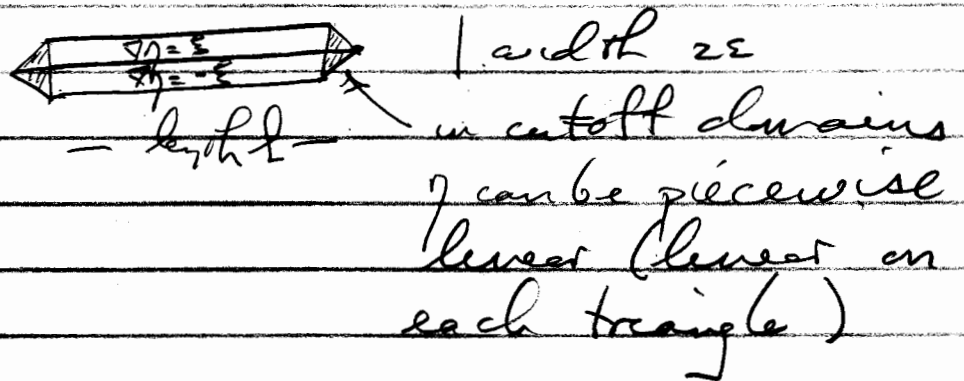 ∇η = ξ
∇η = -ξ
width 2ε
— length l —
in cutoff domains
η can be piecewise
linear (linear on
each triangle)